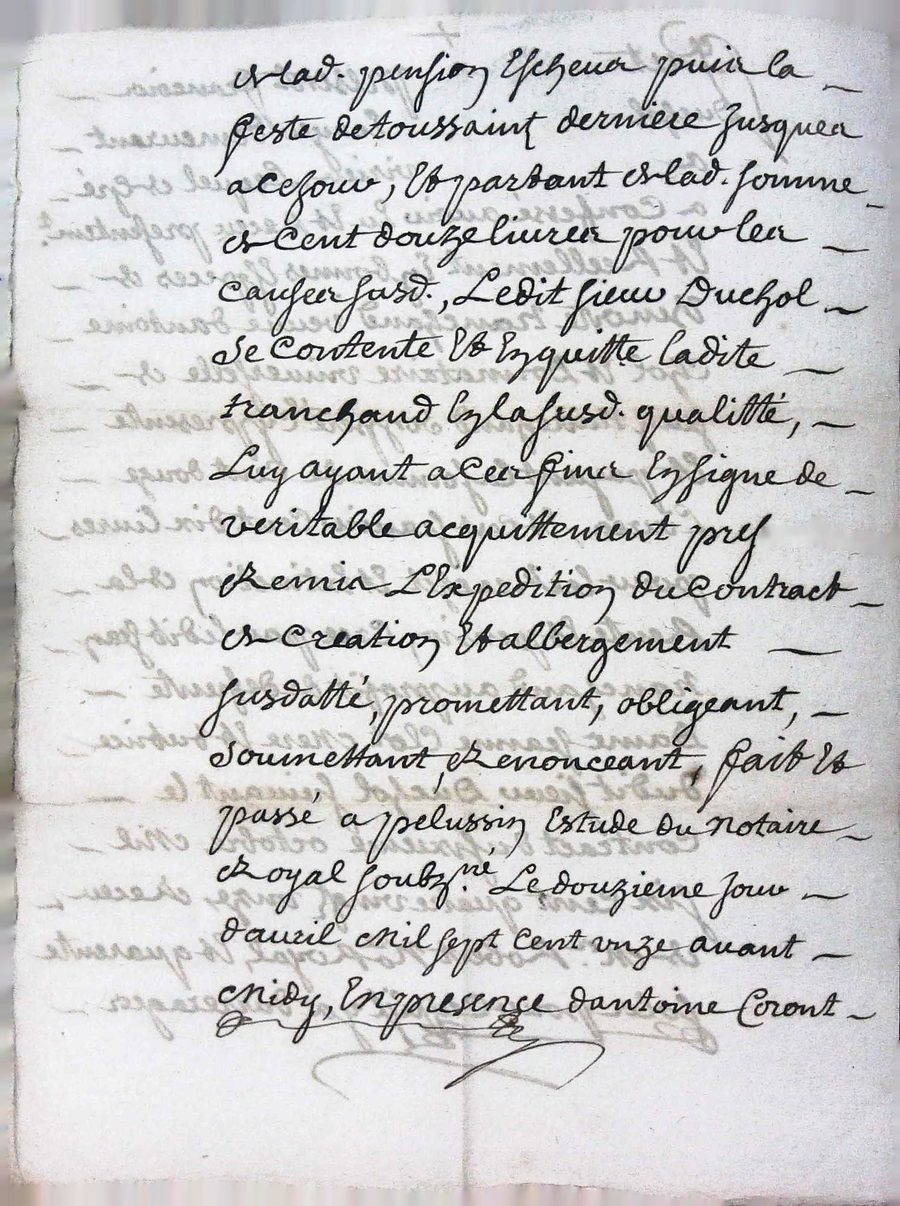 de lad. pension Escheue puis la
feste de toussaint derniere Jusques
a ce Jour, Et partant de lad. somme
de Cent douze livres pour les
causes susd., Ledit sieur Duchol
se contente Et En quitte ladite
tranchand En la susd. qualitté,
Luy ayant a ces fins En signe de
veritable acquittement
Remis L'Expedition du Contract
de Creation Et albergement
susdatté, promettant, obligeant,
soumettant, Renonceant, fait Et
passé a pelussin Estude du notaire
Royal soubz.né Le douzieme Jour
d'avril Mil sept cent unze avant
Midy, En presence d'antoine Coront